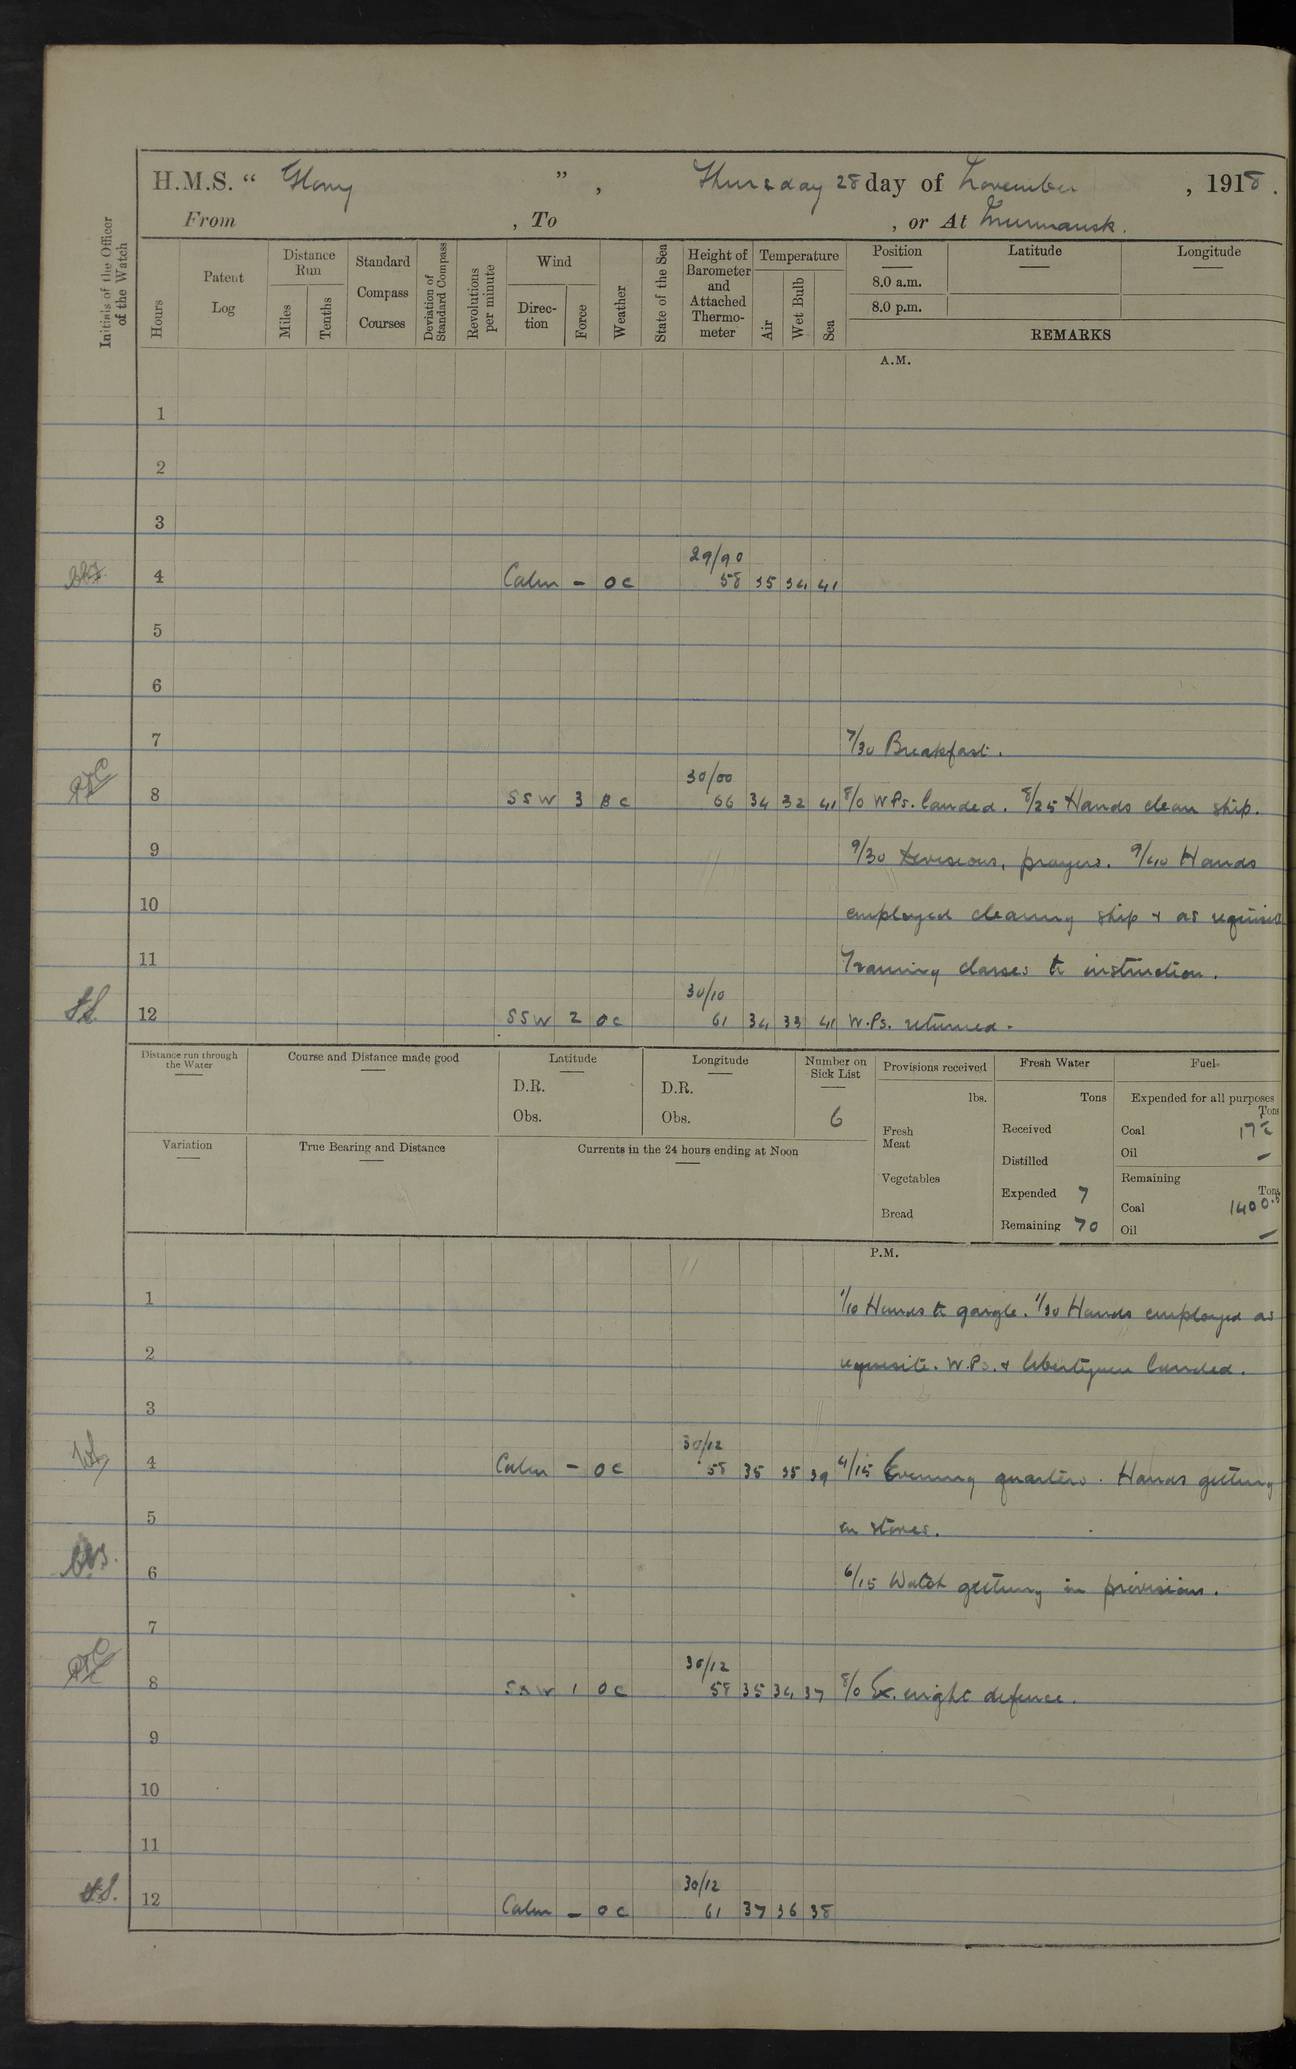 H.M.S. “ Glory ” , Thursday 28 day of November , 1918 .
From , To , or At Murmansk.
Initials of the Officer of the Watch
Hours
Patent Log
Distance Run
Miles
Tenths
Standard Compass Courses
Deviation of Standard Compass
Revolutions per minute
Wind
Direction
Force
Weather
State of the Sea
Height of Barometer and Attached Thermometer
Temperature
Air
Wet Bulb
Sea
Position
8.0 a.m.
8.0 p.m.
Latitude
Longitude
REMARKS
A.M.
1
2
3
29/90
4 Calm – oc 58 35 34 41
5
6
7 7/30 Breakfast.
30/00
8 SSW 3 BC 66 34 32 41 8/0 W.Ps. landed. 8/25 Hands clean ship.
9 9/30 Divisions, prayers. 9/40 Hands
10 employed cleaning ship & as requisite
11 Training classes to instruction.
30/10
12 SSW 2 oc 61 34 33 41 W.Ps. returned.
Distance run through the Water
Course and Distance made good
Latitude
D.R.
Obs.
Longitude
D.R.
Obs.
Number on Sick List
6
Variation
True Bearing and Distance
Currents in the 24 hours ending at Noon
Provisions received
lbs.
Fresh Meat
Vegetables
Bread
Fresh Water
Tons
Received
Distilled
Expended 7
Remaining 70
Fuel
Expended for all purposes
Tons
Coal
Oil –
Remaining
Tons
Coal 1400.5
Oil –
P.M.
1 1/10 Hands to gargle. 1/30 Hands employed as
2 requisite. W.Ps. & libertymen landed.
3
30/12
4 Calm – oc 58 35 35 39 4/15 Evening quarters. Hands getting
5 in stores.
6 6/15 Watch getting in provisions.
7
30/12
8 SSW 1 oc 58 35 34 37 8/0 Ex. night defence.
9
10
11
30/12
12 Calm – oc 61 37 36 38